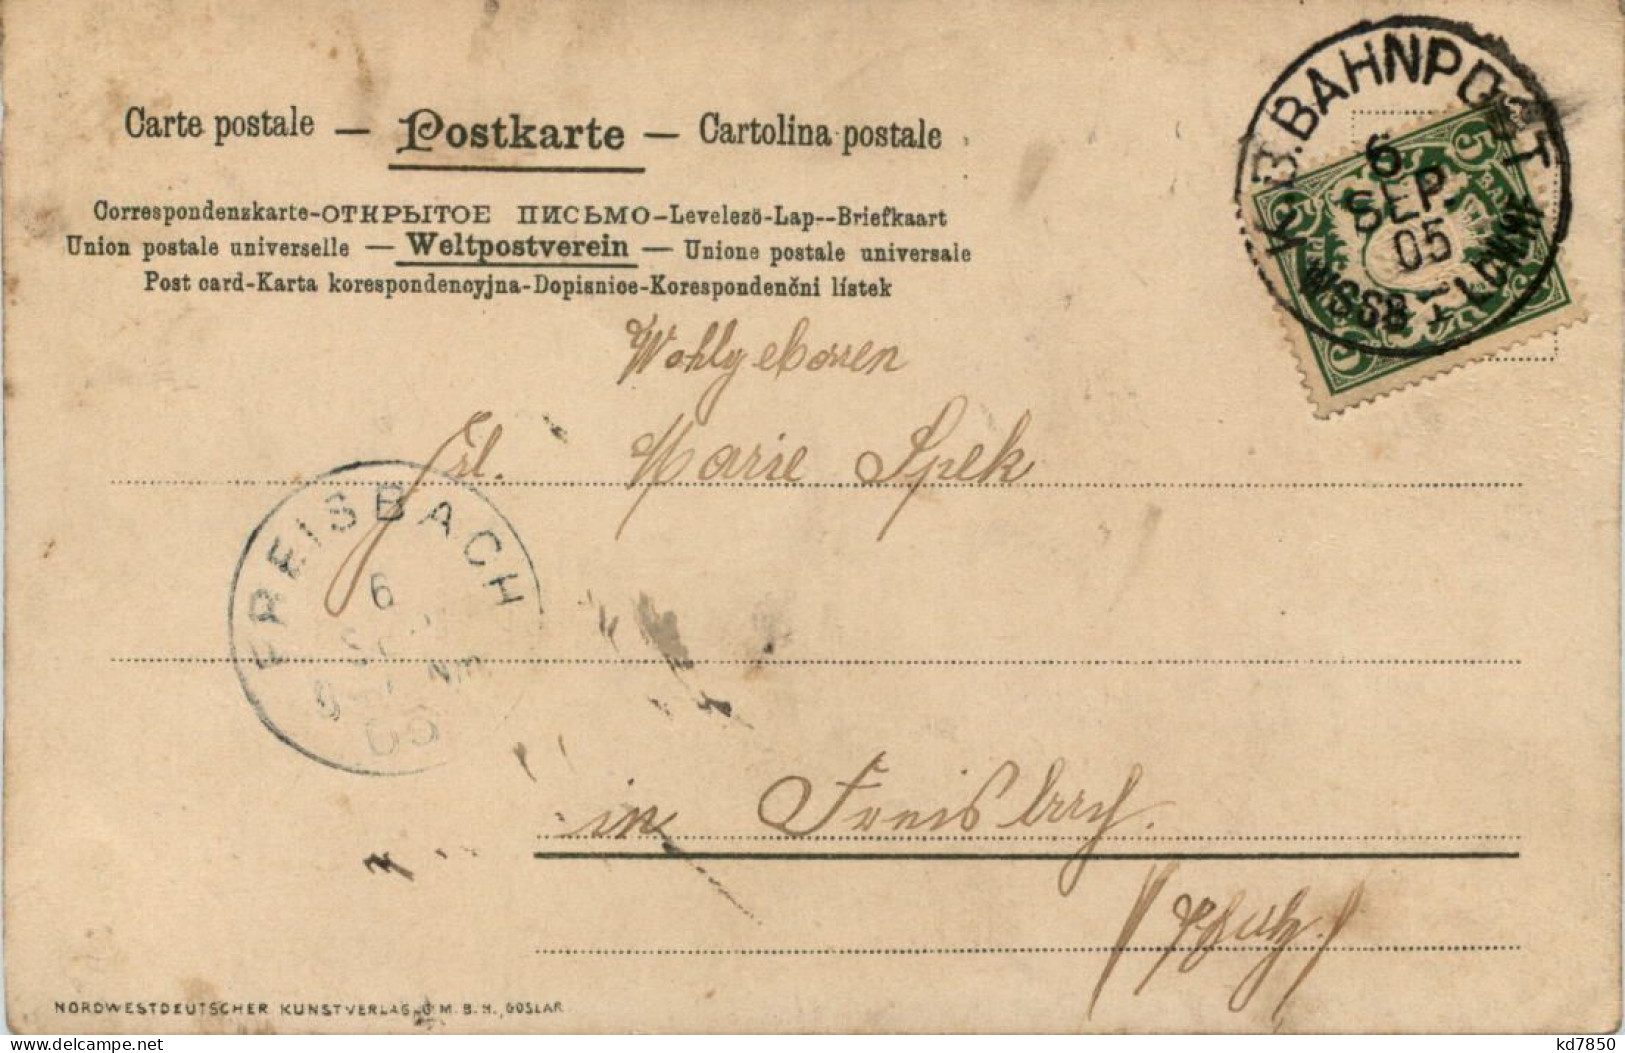 Carte postale — Postkarte — Cartolina postale
Correspondenzkarte-ОТКРЫТОЕ ПИСЬМО-Levelező-Lap--Briefkaart
Union postale universelle — Weltpostverein — Unione postale universale
Post card-Karta korespondencyjna-Dopisnice-Korespondenční lístek
K.B.BAHNPOST
6
SEP.
05
WSSB
5
5
Wohlgeborren
Frl. Marie Spek
FREISBACH
6
05
in Freisbach.
(Pfalz.)
NORDWESTDEUTSCHER KUNSTVERLAG G.M.B.H., GOSLAR
kd7850